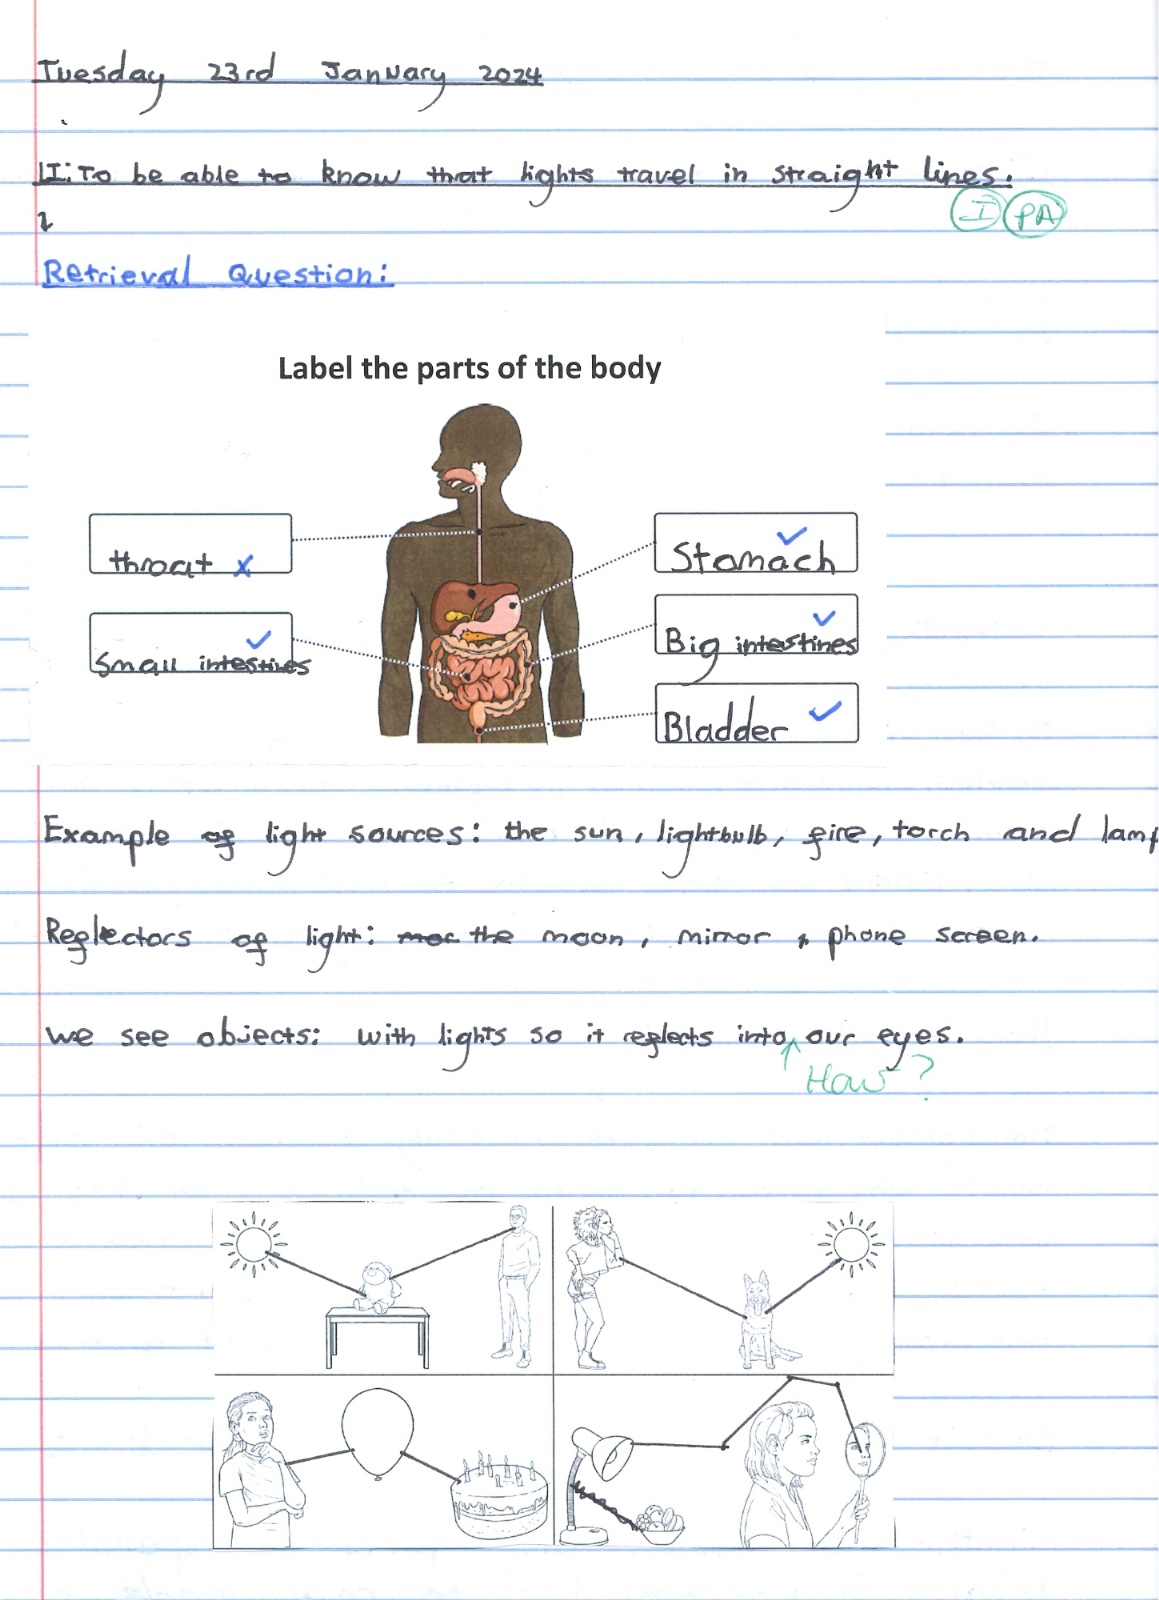 Tuesday 23rd January 2024
LI: To be able to know that lights travel in straight lines.
I PA
Retrieval Question:
Label the parts of the body
throat x
Stomach ✓
Small intestines ✓
Big intestines ✓
Bladder ✓
Example of light sources: the sun, lightbulb, fire, torch and lamp
Reflectors of light: the moon, mirror, phone screen.
we see objects: with lights so it reflects into our eyes.
How?